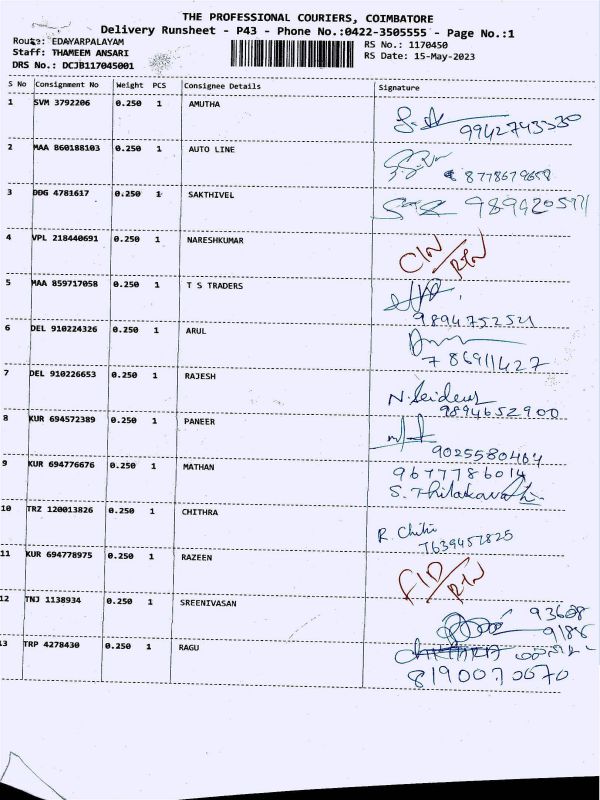 THE PROFESSIONAL COURIERS, COIMBATORE
Delivery Runsheet - P43 - Phone No.:0422-3505555 - Page No.:1
Route: EDAYARPALAYAM
RS No.: 1170450
Staff: THAMEEM ANSARI
RS Date: 15-May-2023
DRS No.: DCJB117045001
S No Consignment No Weight PCS Consignee Details Signature
1 SVM 3792206 0.250 1 AMUTHA
9942743330
2 MAA 860188103 0.250 1 AUTO LINE
8778679658
3 DDG 4781617 0.250 1 SAKTHIVEL
4 VPL 218440691 0.250 1 NARESHKUMAR
CIN/RTN
5 MAA 859717058 0.250 1 T S TRADERS
9894752521
6 DEL 910224326 0.250 1 ARUL
786911427
7 DEL 910226653 0.250 1 RAJESH
9894652900
8 KUR 694572389 0.250 1 PANEER
9025580464
9 KUR 694776676 0.250 1 MATHAN
9677786014
S. Thilakavathi
10 TRZ 120013826 0.250 1 CHITHRA
R. Chitri
7639457825
11 KUR 694778975 0.250 1 RAZEEN
FID/RTN
12 TNJ 1138934 0.250 1 SREENIVASAN
93628
9188
13 TRP 4278430 0.250 1 RAGU
8190070670